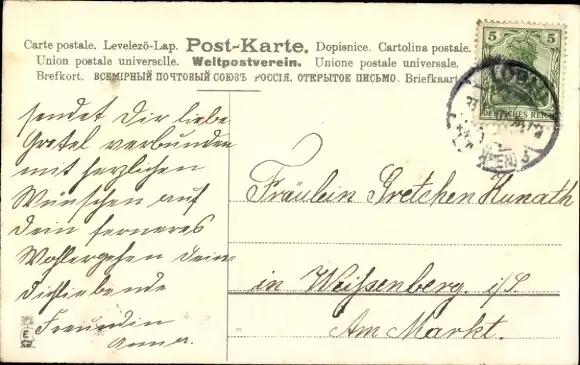 Carte postale. Levelezö-Lap. Post-Karte. Dopisnice. Cartolina postale.
Union postale universelle. Weltpostverein. Unione postale universale.
Brefkort. ВСЕМІРНЫЙ ПОЧТОВЫЙ СОЮЗЪ РОССІЯ. ОТКРЫТОЕ ПИСЬМО. Briefkaart.
5 5
DEUTSCHES REICH
LÖBAU
sendet Dir liebe
Gretel verbunden
mit herzlichen
Wünschen auf
Dein ferneres
Wohlergehen Deine
Dichliebende
Freundin
Anna.
Fräulein Gretchen Kunath
in Weissenberg. i/S.
Am Markt.
E